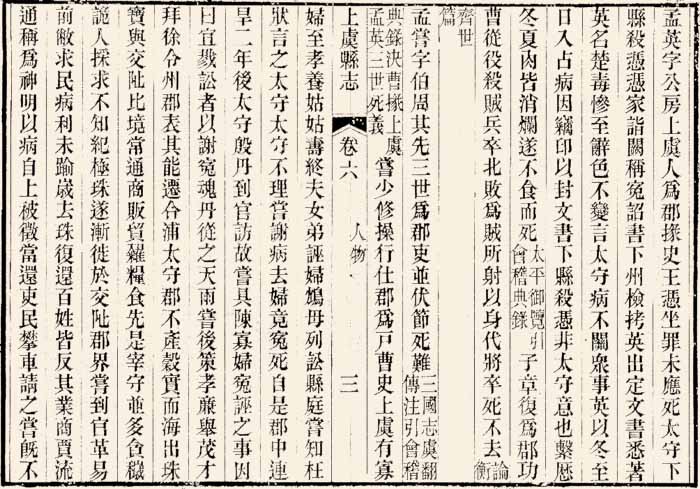 孟英字公房上虞人為郡掾史王憑坐罪未應死太守下
縣殺憑憑家詣闕稱寃詔書下州檢拷英出定文書悉著
英名楚毒慘至辭色不變言太守病不關衆事英以冬至
日入占病因竊印以封文書下縣殺憑非太守意也繫歴
冬夏肉皆消爛遂不食而死太平御覽引會稽典錄子章復為郡功
曹從役殺賊兵卒北敗為賊所射以身代將卒死不去論衡
齊世篇
孟嘗字伯周其先三世為郡吏並伏節死難三國志虞翻傳注引會稽
典錄決曹掾上虞孟英三世死義嘗少修操行仕郡為戸曹史上虞有寡
上虞縣志 卷六 人物 三
婦至孝養姑姑壽終夫女弟誣婦鴆母列訟縣庭嘗知枉
狀言之太守太守不理嘗謝病去婦竟寃死自是郡中連
旱二年後太守殷丹到官訪故嘗具陳寡婦寃誣之事因
曰宜戮訟者以謝寃魂丹從之天雨嘗後策孝廉舉茂才
拜徐令州郡表其能遷合浦太守郡不產穀實而海出珠
寶與交阯比境常通商販貿糴糧食先是宰守並多貪穢
詭人採求不知紀極珠遂漸徙於交阯郡界嘗到官革易
前敝求民病利未踰歲去珠復還百姓皆反其業商賈流
通稱為神明以病自上被徵當還吏民攀車請之嘗旣不